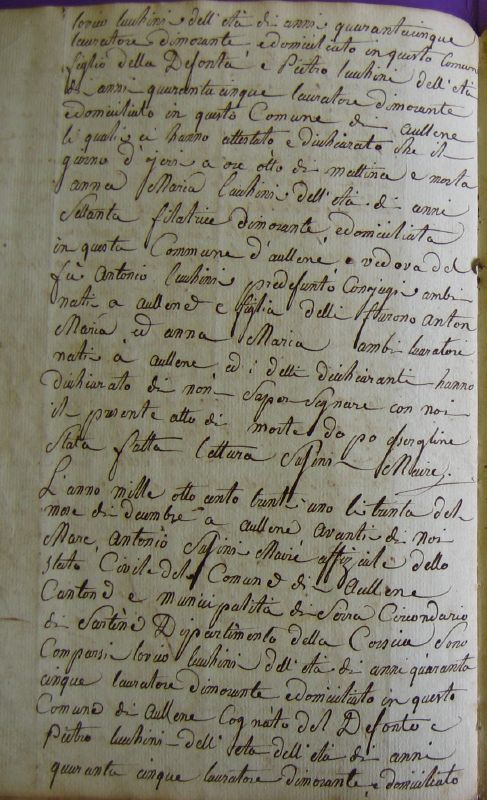 Lovico Luchini dell'età di anni quarantacinque
lauratore dimorante edomiciliato in questo Comune
figlio della Defonta e Pietro Luchini dell'età
di anni quaranta cinque lauratore dimorante
edomiciliato in questo Comune di Aullene
li quali ci hanno attestato e dichiarato che il
giorno d'jeri a ore otto di mattina e morta
anna Maria Luchini dell'età di anni
Settanta filatrice dimorante edomiciliata
in questa Commune d'aullene, e vedova del
fù Antonio Luchini predefunto Conjugi ambi
nati a aullene e figlia delli furono Anton
Maria ed anna Maria ambi lauratori
nati à aullene ed i detti dichiaranti hanno
dichiarato di non saper signare con noi
il presente atto di morte dopo essergline
stata fatta lettura Susini Maire
L'anno mille otto cento trent'uno li trenta del
mese di decembre a aullene avanti di noi
Marc' Antonio Susini Maire officiale dello
stato Civile del Comune di Aullene
Cantone e municipalità di Serra Circondario
di Sartene Dipartimento della Corsica Sono
Comparsi Lovico Luchini dell'età di anni quaranta
cinque lauratore dimorante edomiciliato in questo
Comune di aullene Cognato del Defonto e
Pietro Luchini dell' età dell'età di anni
quaranta cinque lauratore dimorante e domiciliato